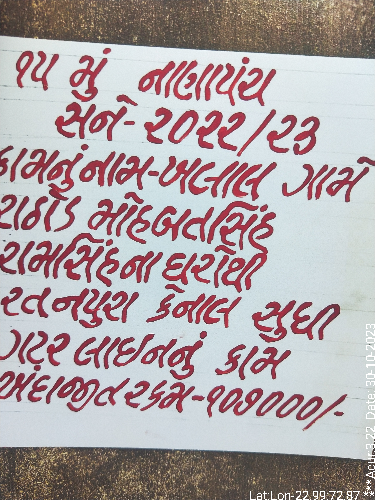 ૧૫ મું નાણાપંચ
સને-૨૦૨૨/૨૩
કામનું નામ-ખલાલ ગામે
રાઠોડ મોહબતસિંહ
રામસિંહના ઘરોથી
રતનપુરા કેનાલ સુધી
ગટર લાઈનનું કામ
અંદાજીત રકમ-૧૦૭૦૦૦/-
Lat Lon-22.99:72.87
***Acur:3.22 Date: 30-10-2023